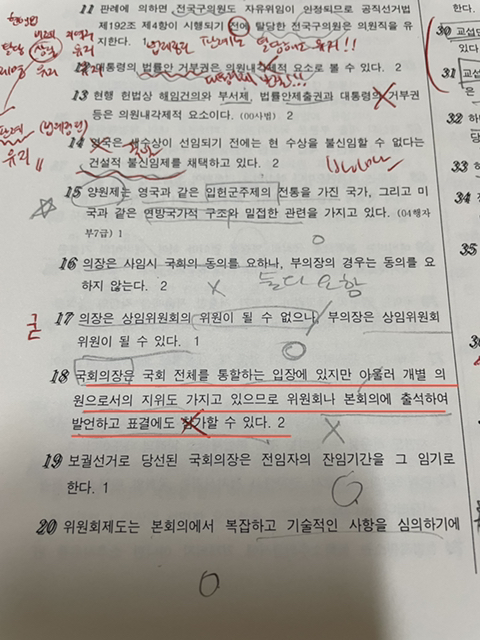 11 판례에 의하면 전국구의원도 자유위임이 인정되므로 공직선거법
제192조 제4항이 시행되기 전에 탈당한 전국구의원은 의원직을 유
지한다. 1
12 대통령의 법률안 거부권은 의원내각제적 요소로 볼 수 있다. 2
13 현행 헌법상 해임건의와 부서제, 법률안제출권과 대통령의 거부권
등은 의원내각제적 요소이다. (00사법) 2
14 영국은 새수상이 선임되기 전에는 현 수상을 불신임할 수 없다는
건설적 불신임제를 채택하고 있다. 2
15 양원제는 영국과 같은 입헌군주제의 전통을 가진 국가, 그리고 미
국과 같은 연방국가적 구조와 밀접한 관련을 가지고 있다. (04행자
부7급) 1
16 의장은 사임시 국회의 동의를 요하나, 부의장의 경우는 동의를 요
하지 않는다. 2
둘다 요함
17 의장은 상임위원회의 위원이 될 수 없으나, 부의장은 상임위원회
위원이 될 수 있다. 1
18 국회의장은 국회 전체를 통할하는 입장에 있지만 아울러 개별 의
원으로서의 지위도 가지고 있으므로 위원회나 본회의에 출석하여
발언하고 표결에도 참가할 수 있다. 2
19 보궐선거로 당선된 국회의장은 전임자의 잔임기간을 그 임기로
한다. 1
20 위원회제도는 본회의에서 복잡하고 기술적인 사항을 심의하기에
한다.
30 교섭단
있다
31 교섭
은
32
33
34
35